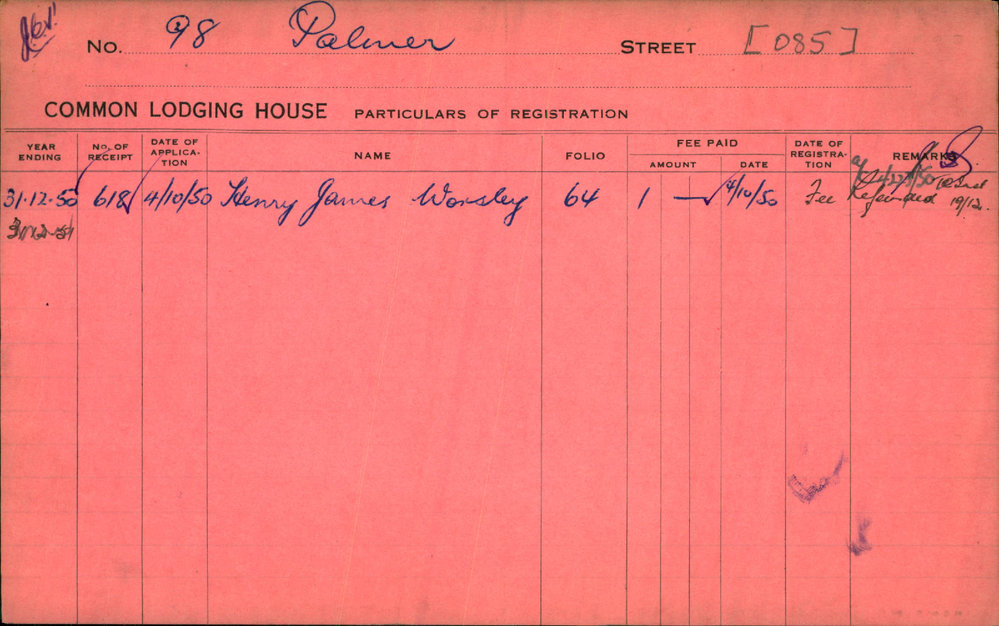 No. 98 Palmer STREET [085]
COMMON LODGING HOUSE PARTICULARS OF REGISTRATION
YEAR ENDING No. OF RECEIPT DATE OF APPLICA-TION NAME FOLIO FEE PAID AMOUNT DATE DATE OF REGISTRA-TION REMARKS
31.12.50 618 4/10/50 Henry James Worsley 64 1 — 4/10/50 Fee Refunded 19/12.
31/12.51